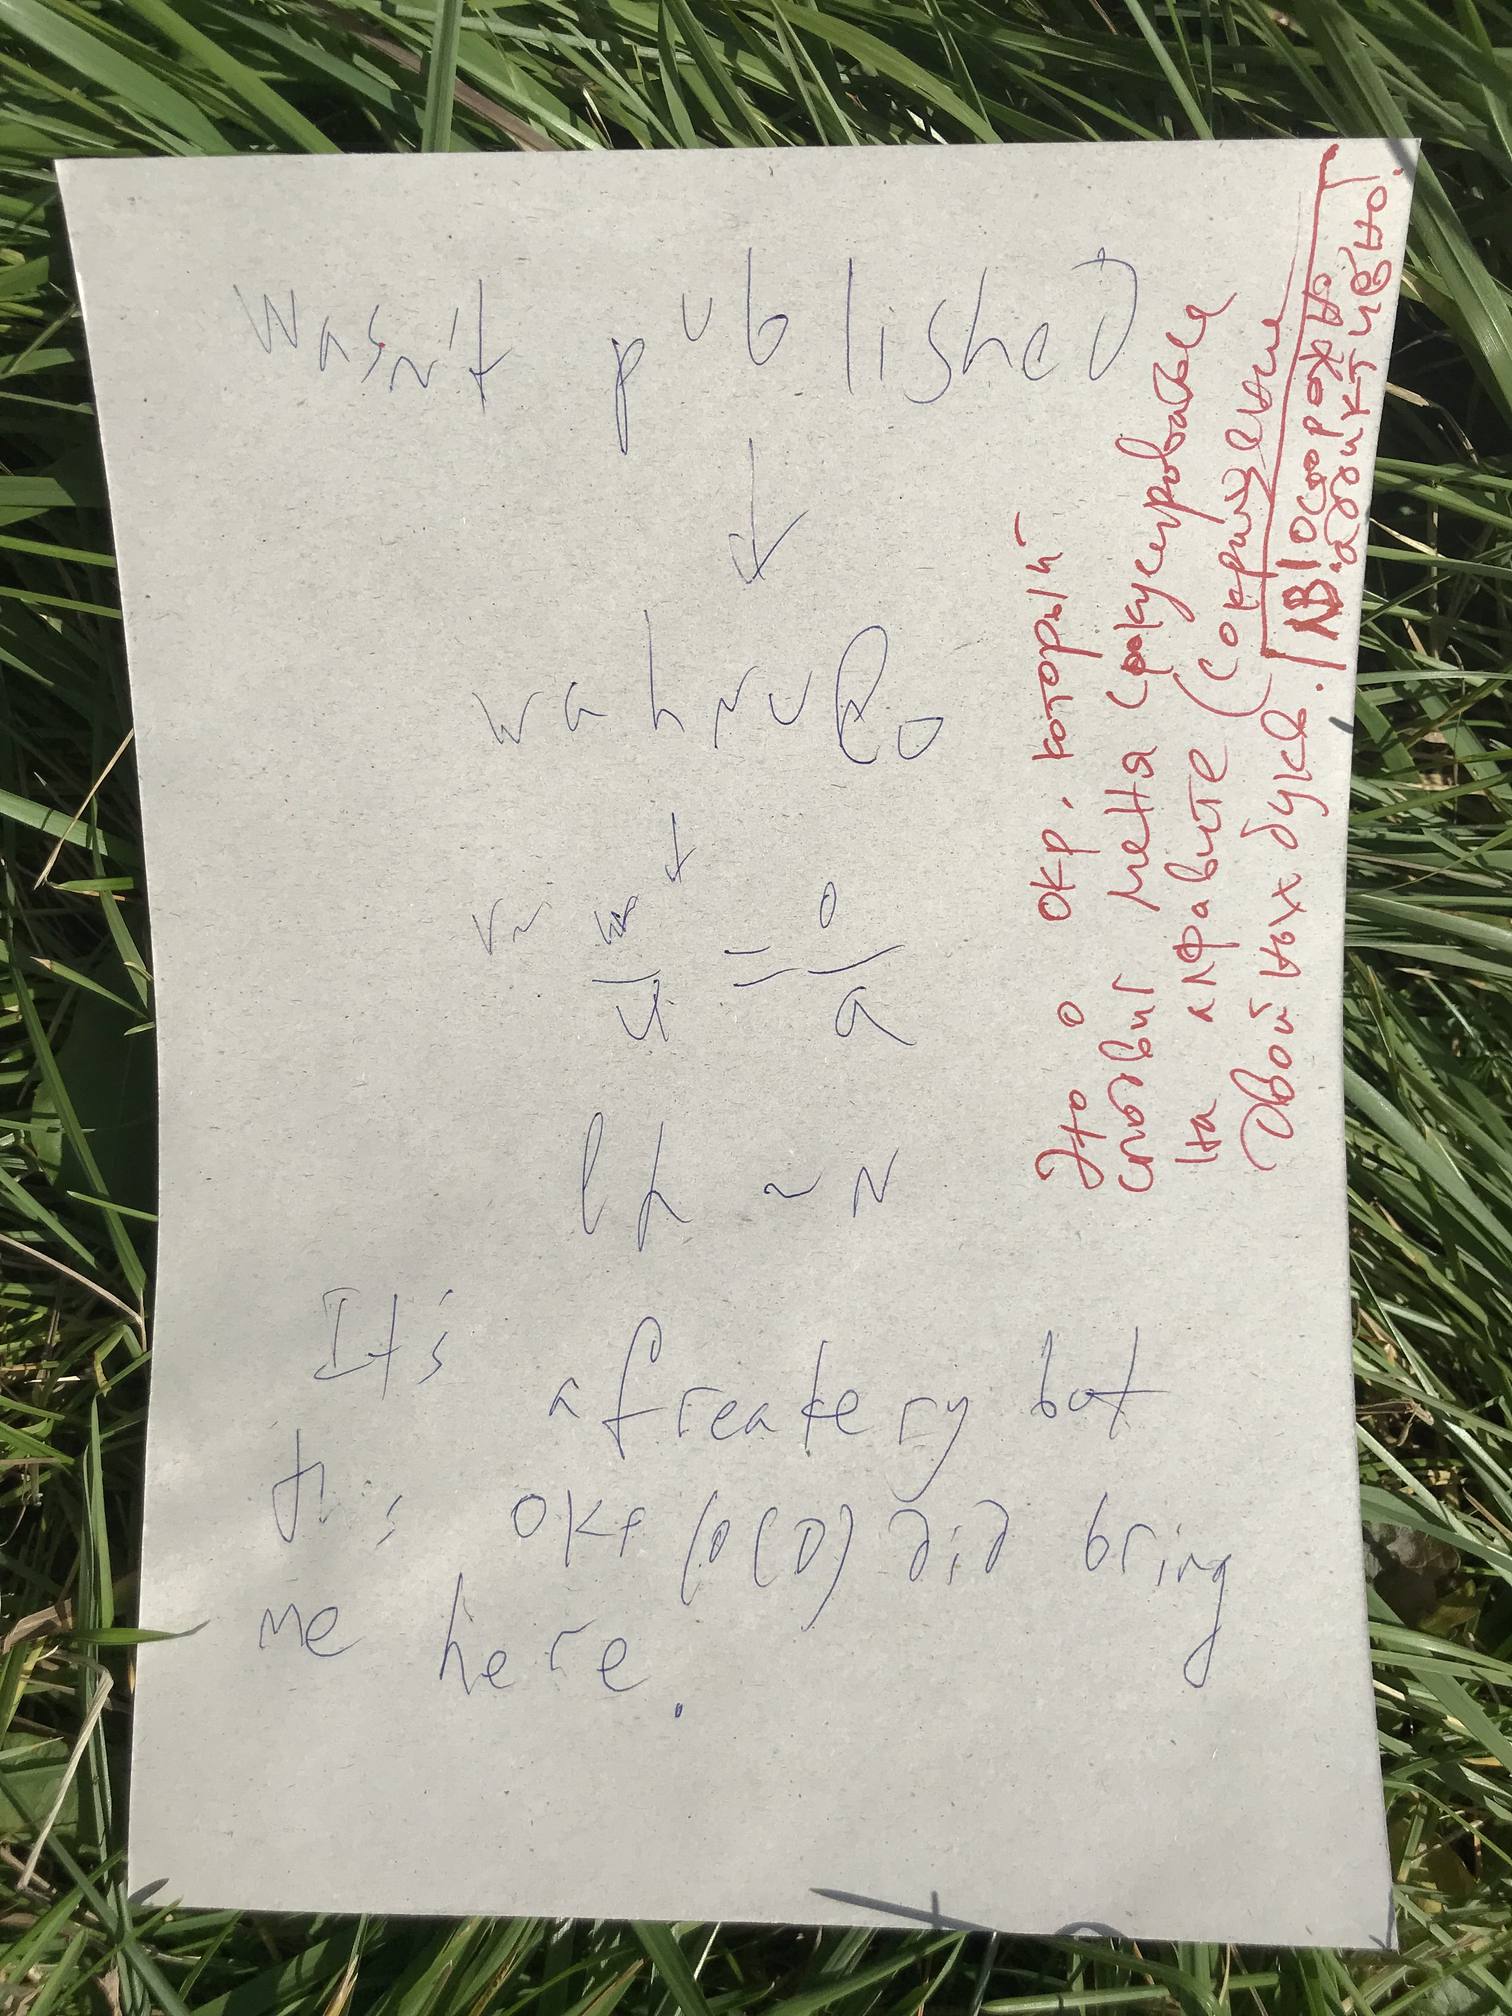 wasn't published
↓
wahnulo
↓
w/u = o/a
lh ~ N
It's
a freakery but
this окр (OCD) did bring
me here.
Это о окр, который
сподвиг меня сфокусироваться
на алфавите (сокращение
двойных букв.
NB! Осторожно,
аддиктивно!